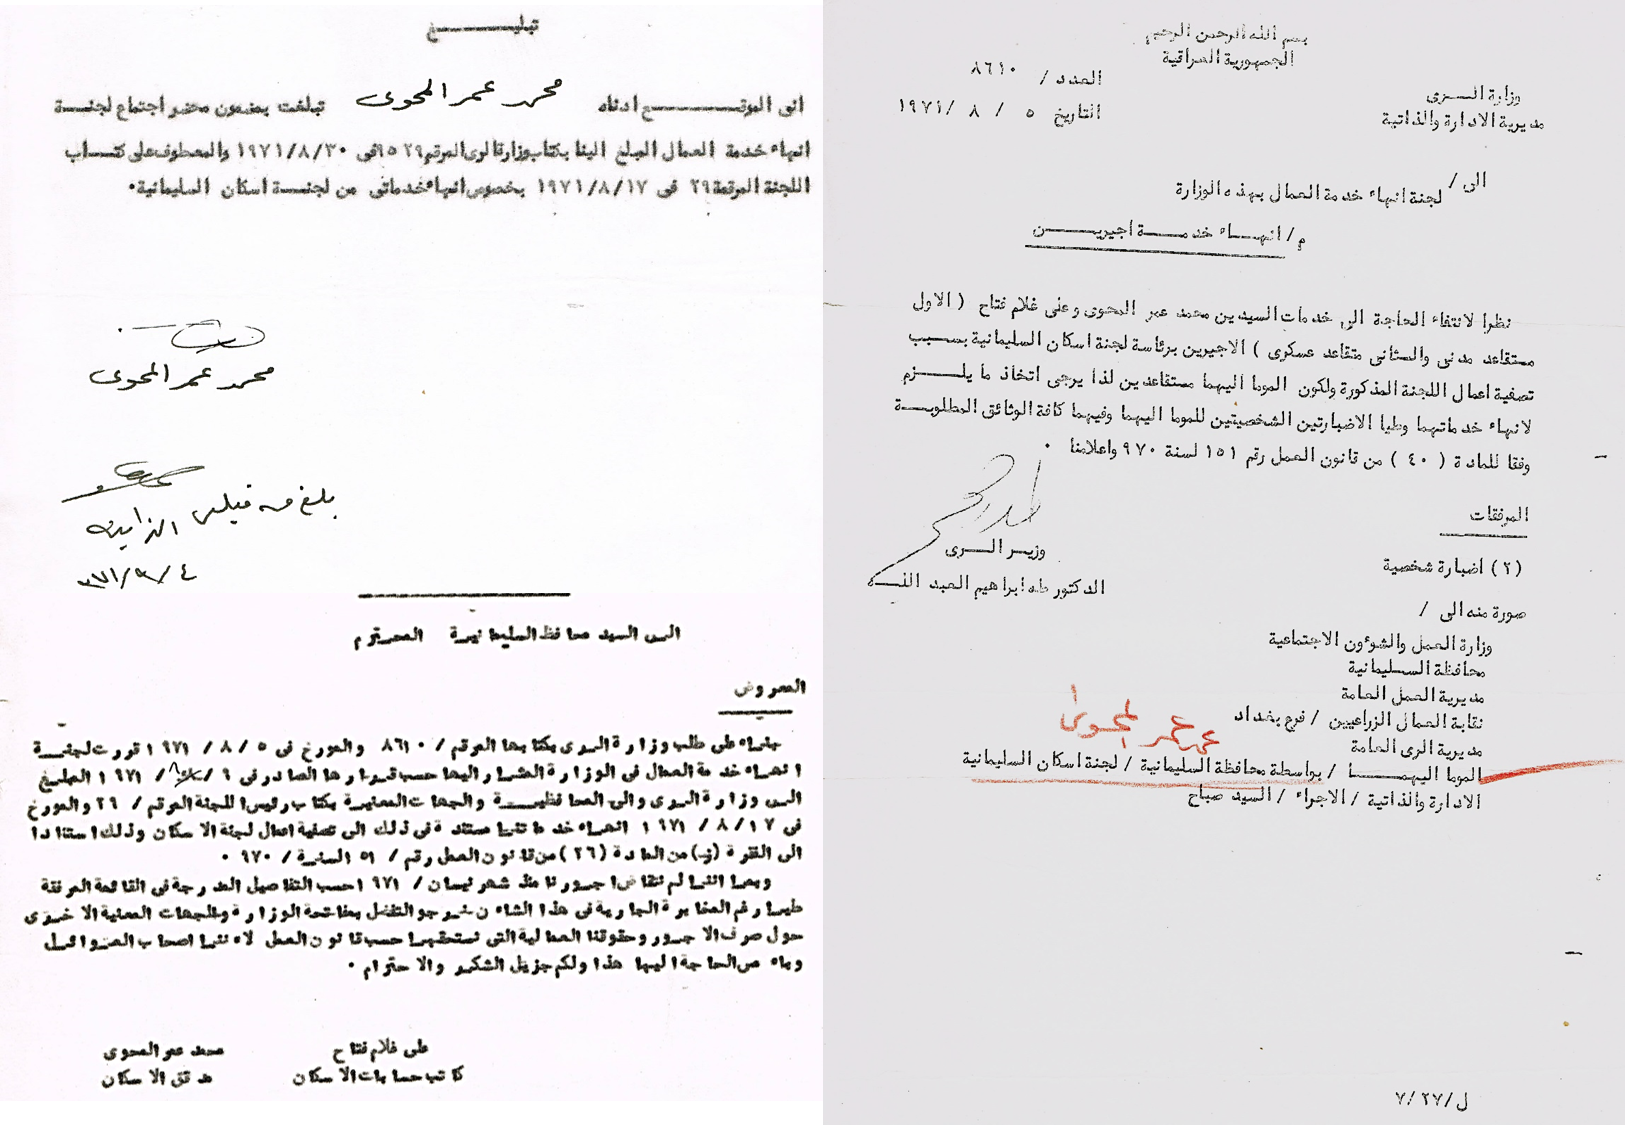 بسم الله الرحمن الرحيم
الجمهورية العراقية
وزارة الـــرى
مديرية الادارة والذاتية
العدد / ٨٦١٠
التاريخ ٥ / ٨ /١٩٧١
الى / لجنة انهاء خدمة العمال بهذه الوزارة
م/ انهـــاء خدمـــة اجيريـــن
نظرا لانتفاء الحاجة الى خدمات السيدين محمد عمر المحوى وعلى غلام فتاح ( الاول
متقاعد مدنى والثانى متقاعد عسكرى ) الاجيرين برئاسة لجنة اسكان السليمانية بسبب
تصفية اعمال اللجنة المذكورة ولكون الموما اليهما متقاعدين لذا يرجى اتخاذ ما يلـــزم
لانهاء خدماتهما وطيا الاضبارتين الشخصيتين للموما اليهما وفيهما كافة الوثائق المطلوبـــة
وفقا للمادة ( ٤٠ ) من قانون العمل رقم ١٥١ لسنة ٩٧٠ واعلامنا ٠
وزيـر الـــرى
الدكتور طه ابراهيم العبد اللـــه
المرفقات
(٢) اضبارة شخصية
صورة منه الى /
وزارة العمل والشوءون الاجتماعية
محافظة السليمانية
مديرية العمل العامة
نقابة العمال الزراعيين / فرع بغداد
مديرية الرى العامة
محمد عمر المحوى
الموما اليهمـــا / بواسطة محافظة السليمانية / لجنة اسكان السليمانية
الادارة والذاتية / الاجراء / السيد صباح
ل/٧/٢٧
تبليـــــــغ
انى الموقـــــــع ادناه محمد عمر المحوى تبلغت بمضمون محضر اجتماع لجنـــة
انهاء خدمة العمال المبلغ الينا بكتاب وزارة الرى المرقم ٩٥٢٩ فى ١٩٧١/٨/٣٠ والمعطوف على كتـــاب
اللجنة المرقمة ٢٩ فى ١٩٧١/٨/١٧ بخصوص انهاء خدماتى من لجنـــة اسكان السليمانية٠
محمد عمر المحوى
بلغ من قبلى
٩٧١/٩/٤
الـى السيد محافظ السليمانيـة المحترم
المعروض
بنـاء على طلب وزارة الـرى بكتابها المرقم / ٨٦١٠ والمورخ فى ٥ / ٨ / ١٩٧١ قررت لجنـــة
انهـاء خدمة العمال فى الوزارة المشار اليها حسب قـرارها الصادر فى ٩ / ٨ / ١٩٧١ المبلـغ
الـى وزارة الـرى والى المحافظـــة والجهات المعنيـة بكتاب رئيس اللجنة المرقم / ٢٩ والمورخ
فى ١٧ / ٨ / ١٩٧١ انهـاء خدماتنـا مستندة فى ذلك الى تصفية اعمال لجنة الاسكان وذلك استنادا
الى الفقرة من المادة (٢٦) من قانون العمل رقم / ١٥١ لسنـة / ٩٧٠ ٠
وبمـا اننـا لم نتقاض اجـورنا منذ شهر نيسان / ١٩٧١ حسب التفاصيل المدرجة فى القائمة المرفقة
طيـا رغم المخابرة الجارية فى هذا الشان نـرجو التفضل بمفاتحة الوزارة والجهات المعنية الاخـرى
حول صرف الاجـور وحقوقنا العمالية التى نستحقهـا حسب قانون العمل لاننـا اصحاب العـوائـل
وبامس الحاجة اليها هذا ولكم جزيل الشكـر والاحترام ٠
على غلام فتاح
كاتب حسابات الاسكان
محمد عمر المحوى
مدقق الاسكان